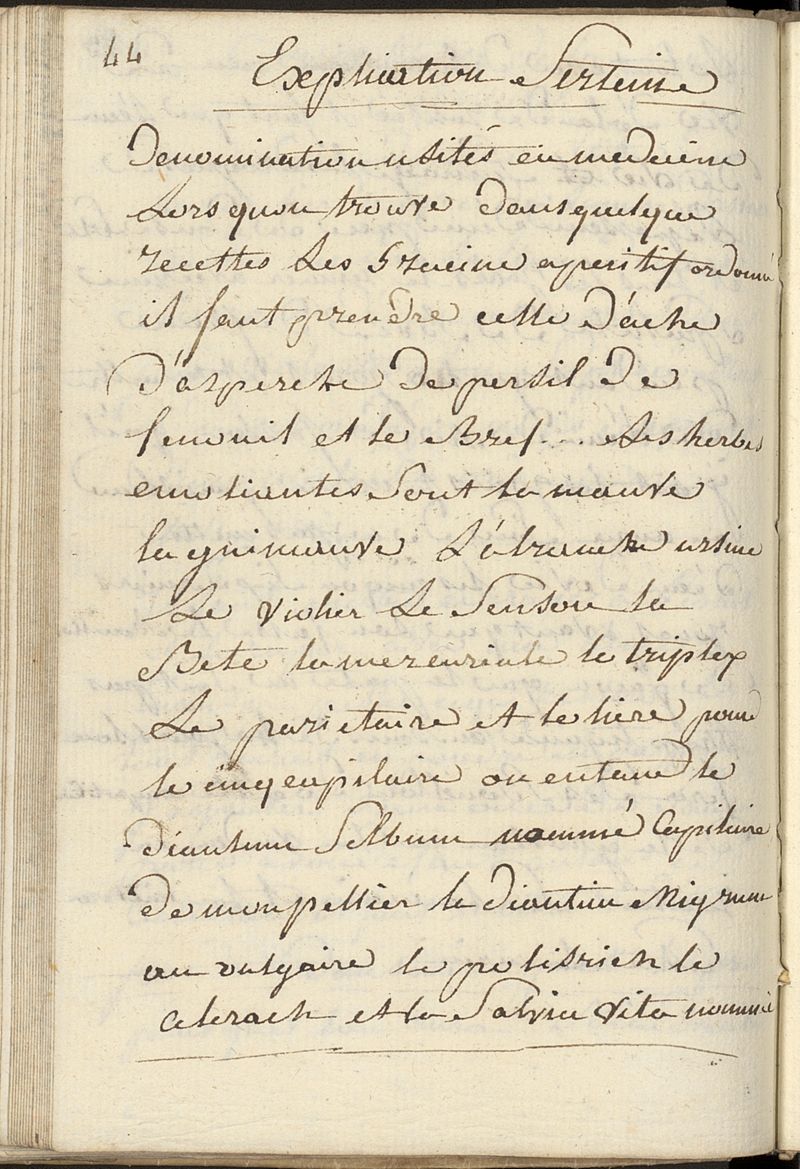 44
Explication Serteine
Denomination usités en medecine
Lors quon trouve dans quelque
recettes Les 5 racine aperitif ordonné
il faut prendre celle D'ache
D'asperche De persil De
fenouil et le Bref... Les herbes
emoliantes Sont la mauve
la guimauve L'abranche ursine
Le violier Le Senson la
Bete la mercuriale le triplex
Le parietaire et le liere pour
le cinq capilaire on entand le
diantum Selbum nommé Capilaire
De monpellier le diantum Nigrum
au vulgaire le politrich le
ceterach et la Salvia vita nommé